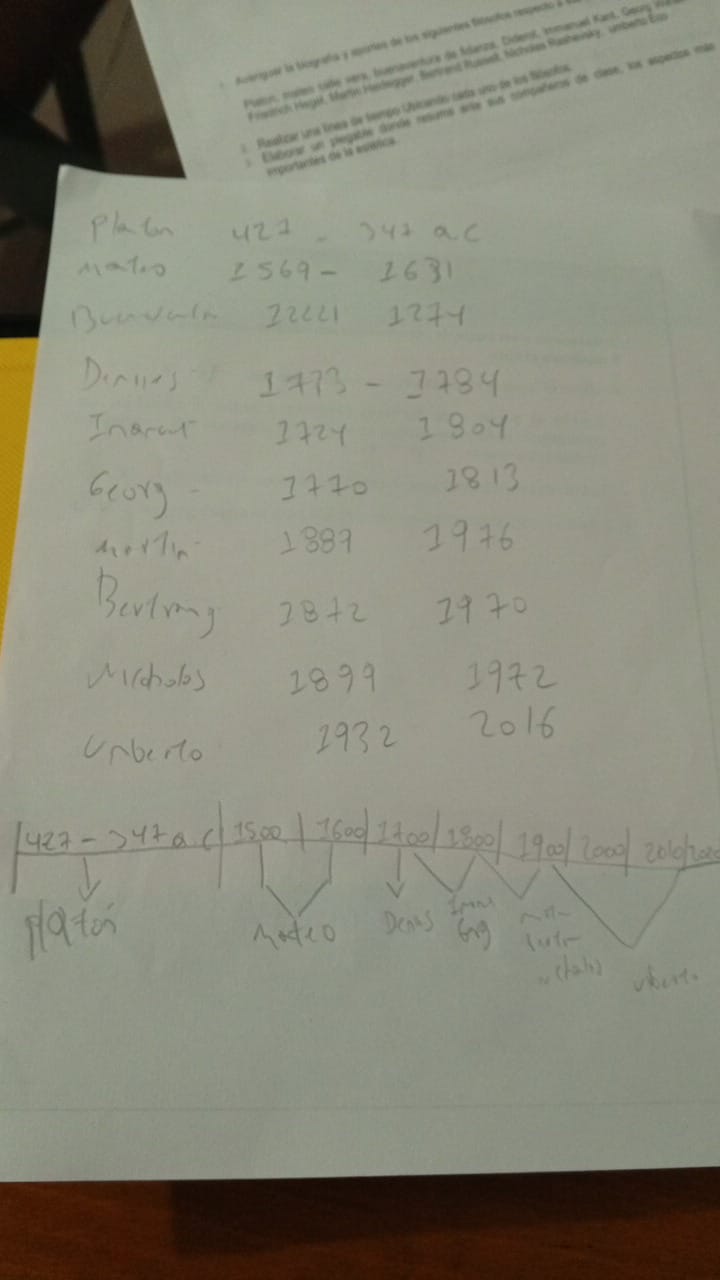 Averiguar la biografía y aportes de los siguientes filósofos respecto a
Platon, mateo calle vera, buenaventura de fidanza, Diderot, Immanuel Kant, Georg
Friedrich Hegel, Martin Heidegger, Bertrand Russell, Nicholas Rashevsky, umberto Eco
Realizar una linea de tiempo Ubicando cada uno de los filósofos.
Elaborar un plegable donde resuma ante sus compañeros de clase, los aspectos más
importantes de la estética.
Platon 427 - 347 a.c
Mateo 1569 - 1631
1221 1274
1773 - 1784
1724 1804
Georg - 1770 1813
Martin 1887 1976
Bertrang 1872 1970
Nicholas 1899 1972
Unberto 1932 2016
427 - 347 a.c 1500 1600 1700 1800 1900 2000 2010
platón Mateo Denis Georg